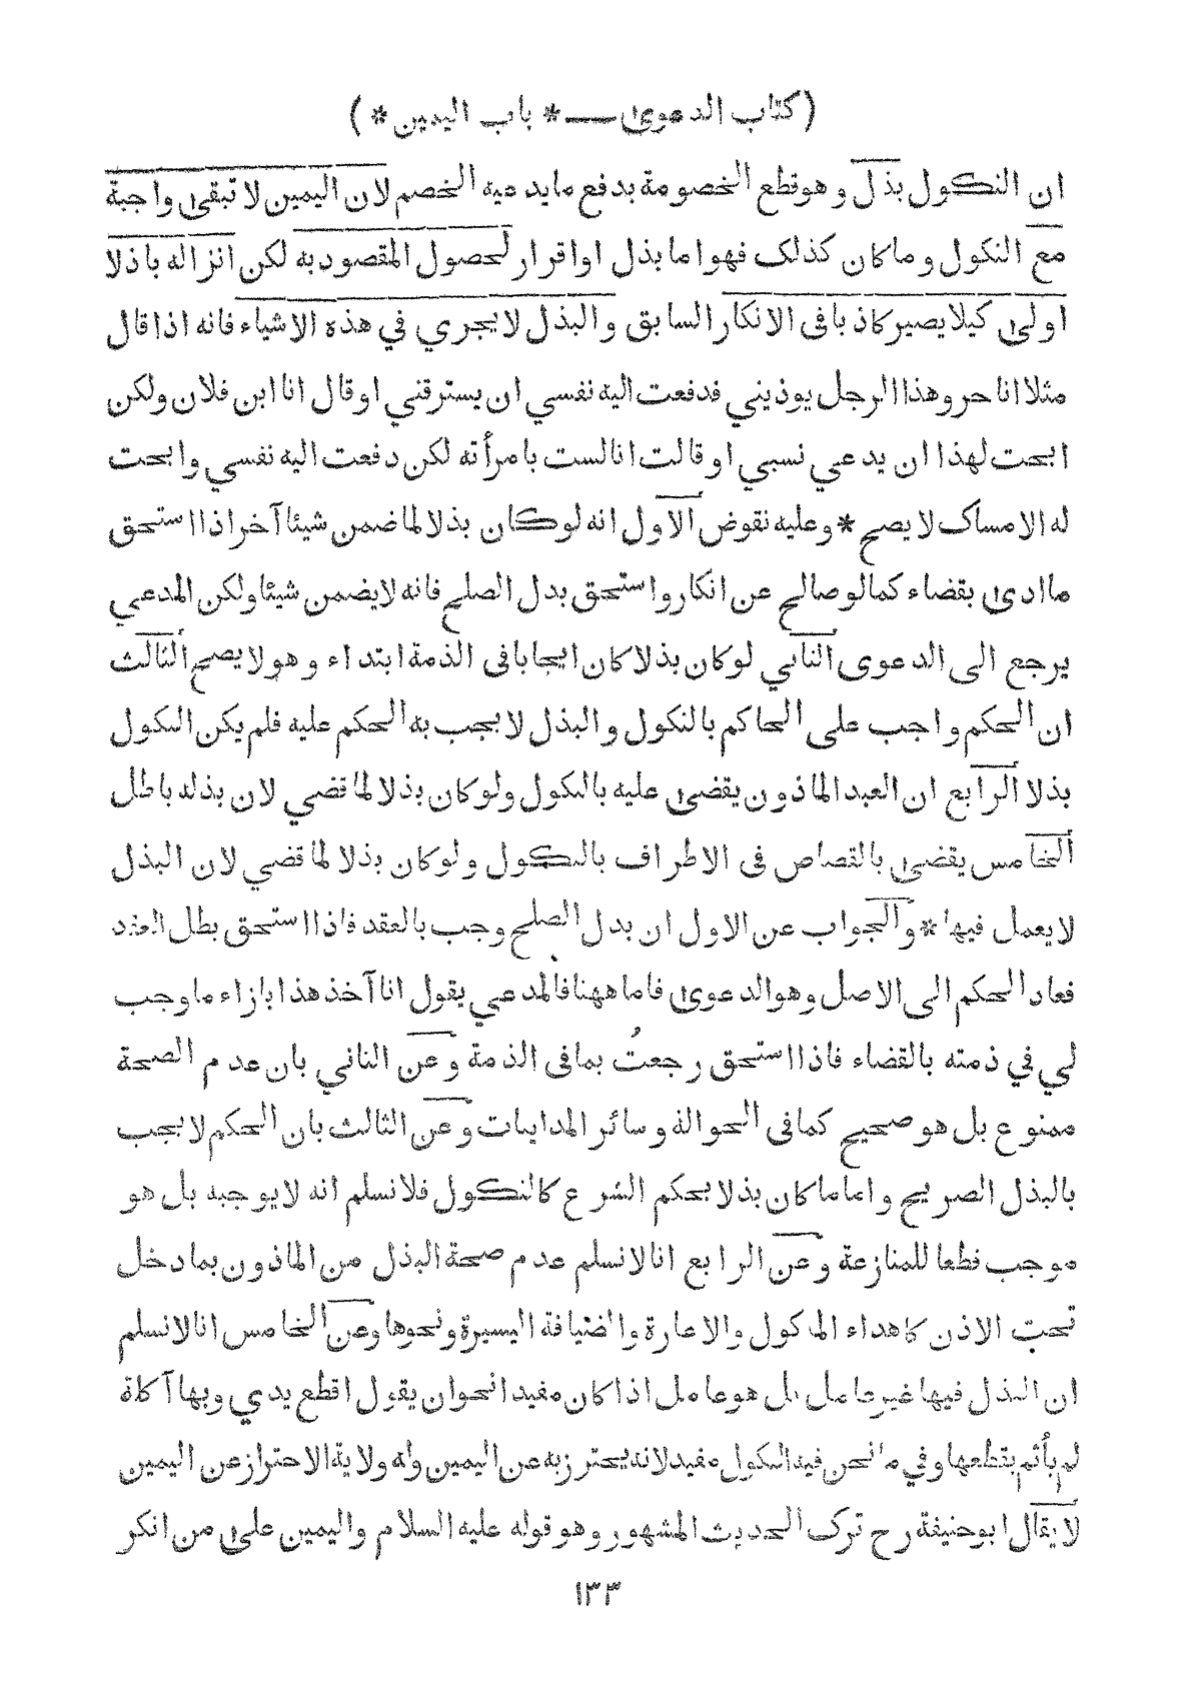 (كتاب الدعوى — * باب اليمين *)
ان النكول بذل وهو قطع الخصومة بدفع ما يدعيه الخصم لان اليمين لا تبقى واجبة
مع النكول وما كان كذلك فهو اما بذل او اقرار لحصول المقصود به لكن انزاله باذلا
اولى كيلا يصير كاذبا فى الانكار السابق والبذل لا يجري في هذه الاشياء فانه اذا قال
مثلا انا حر وهذا الرجل يوذيني فدفعت اليه نفسي ان يسترقني او قال انا ابن فلان ولكن
ابحت لهذا ان يدعي نسبي او قالت انا لست بامرأته لكن دفعت اليه نفسي وابحت
له الامساك لا يصح * وعليه نقوض الاول انه لو كان بذلا لما ضمن شيئا آخر اذا استحق
ما ادى بقضاء كما لو صالح عن انكار واستحق بدل الصلح فانه لا يضمن شيئا ولكن المدعي
يرجع الى الدعوى الثاني لو كان بذلا كان ايجابا فى الذمة ابتداء وهو لا يصح الثالث
ان الحكم واجب على الحاكم بالنكول والبذل لا يجب به الحكم عليه فلم يكن النكول
بذلا الرابع ان العبد الماذون يقضى عليه بالنكول ولو كان بذلا لما قضي لان بذله باطل
الخامس يقضى بالقصاص فى الاطراف بالنكول ولو كان بذلا لما قضي لان البذل
لا يعمل فيها * والجواب عن الاول ان بدل الصلح وجب بالعقد فاذا استحق بطل العقد
فعاد الحكم الى الاصل وهو الدعوى فاما ههنا فالمدعي يقول انا آخذ هذا بازاء ما وجب
لي في ذمته بالقضاء فاذا استحق رجعتُ بما فى الذمة وعن الثاني بان عدم الصحة
ممنوع بل هو صحيح كما فى الحوالة وسائر المداينات وعن الثالث بان الحكم لا يجب
بالبذل الصريح واما ما كان بذلا بحكم الشرع كالنكول فلا نسلم انه لا يوجبه بل هو
موجب قطعا للمنازعة وعن الرابع انا لا نسلم عدم صحة البذل من الماذون بما دخل
تحت الاذن كاهداء الماكول والاعارة والضيافة اليسيرة ونحوها وعن الخامس انا لا نسلم
ان البذل فيها غير عامل بل هو عامل اذا كان مفيدا نحو ان يقول اقطع يدي وبها آكلة
لم يأثم بقطعها وفي ما نحن فيه النكول مفيد لانه يحترز به عن اليمين وله ولاية الاحتراز عن اليمين
لا يقال ابوحنيفة رح ترك الحديث المشهور وهو قوله عليه السلام واليمين على من انكر
١٣٣